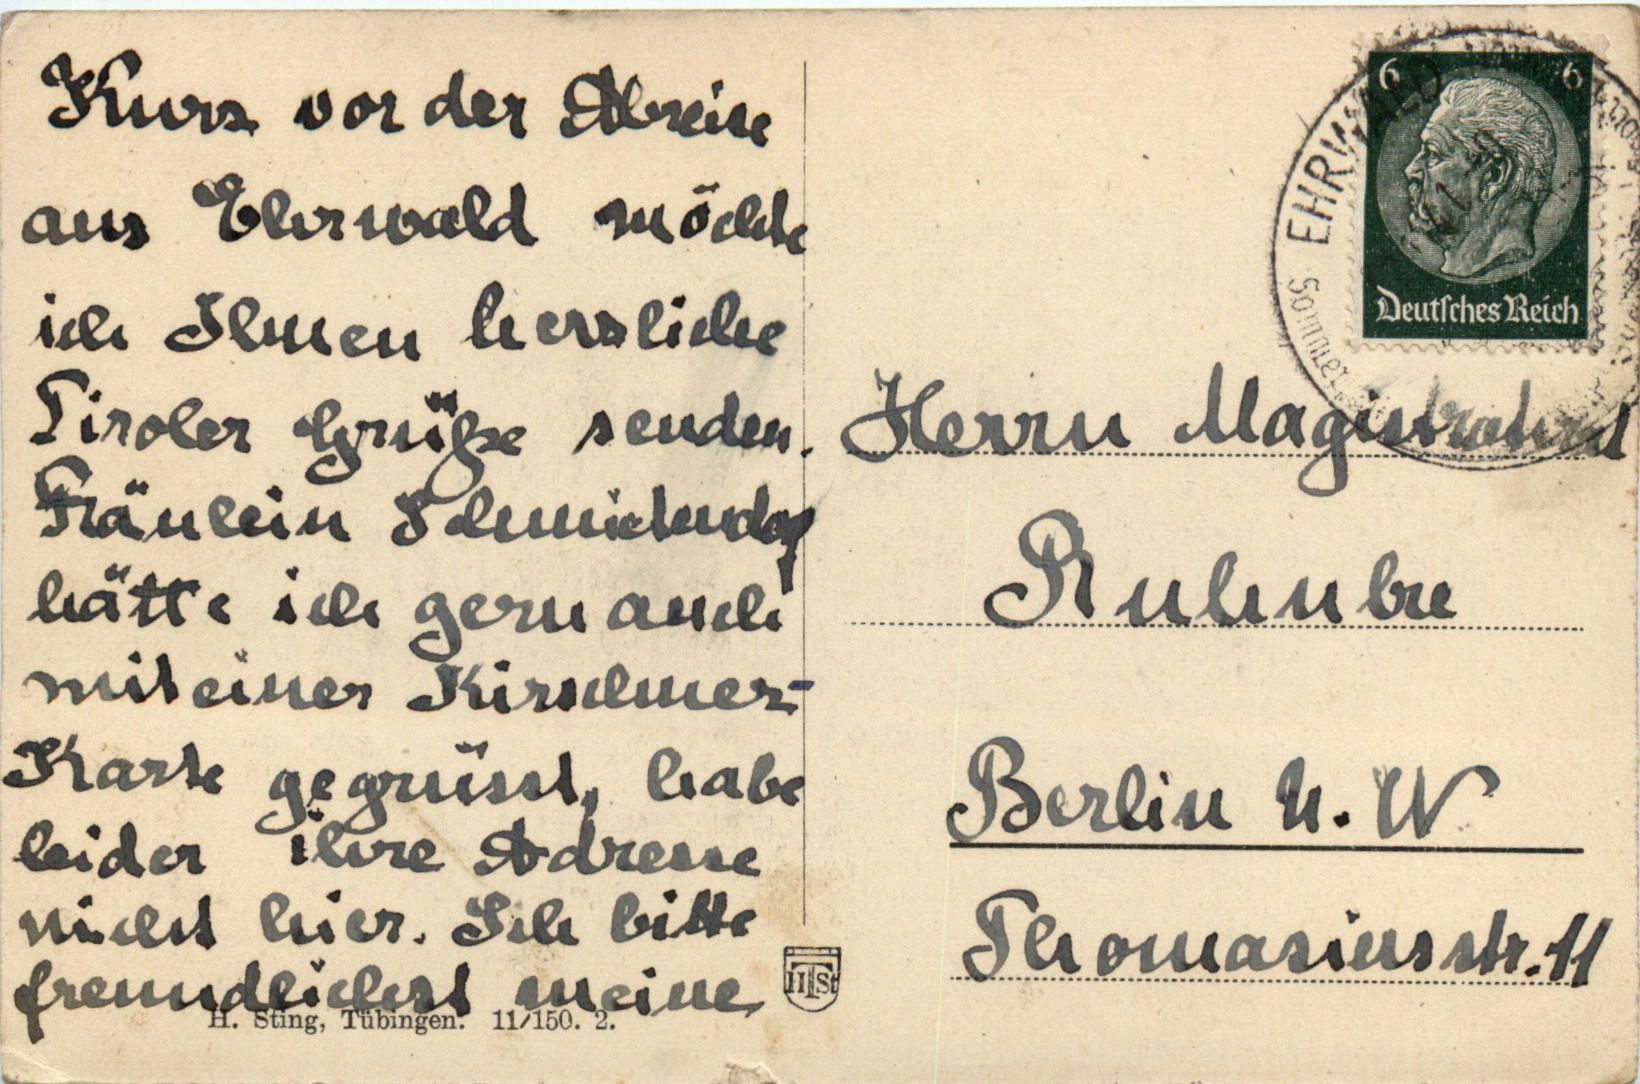 Kurz vor der Abreise
aus Ehrwald möchte
ich Ihnen herzliche
Tiroler Grüße senden.
Fräulein
hätte ich gern auch
mit einer Kirschner-
Karte gegrüsst, habe
leider ihre Adresse
nicht hier. Ich bitte
freundlichst meine
H. Sting, Tübingen. 11/150. 2.
HTSt
6 6
Deutsches Reich
EHRWALD
Sommer
Herrn Magistratsrat
Ruhnke
Berlin N.W
Thomasiusstr. 11